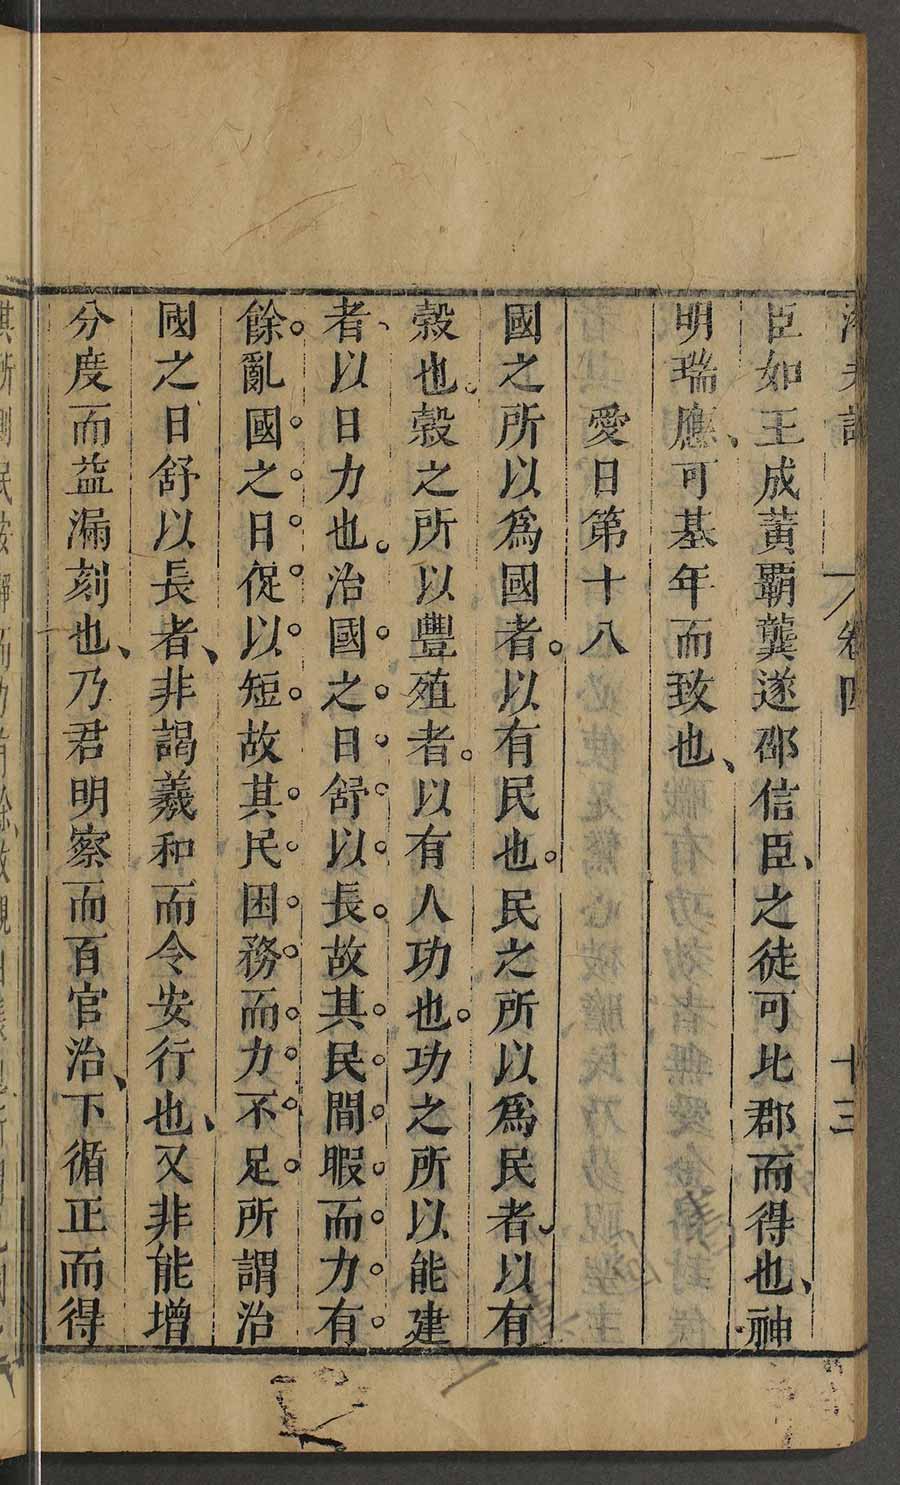 潛夫論 卷四 十三
臣如王成黃霸龔遂邵信臣、之徒可比郡而得也、神
明瑞應、可基年而致也、
愛日第十八
國之所以爲國者。以有民也。民之所以爲民者、以有
榖也。榖之所以豐殖者。以有人功也。功之所以能建
者、以日力也。治國之日舒以長。故其民閒暇而力有
餘。亂國之日促以短。故其民困務而力不足。所謂治
國之日舒以長者、非謁羲和而令安行也、又非能增
分度而益漏刻也、乃君明察而百官治、下循正而得